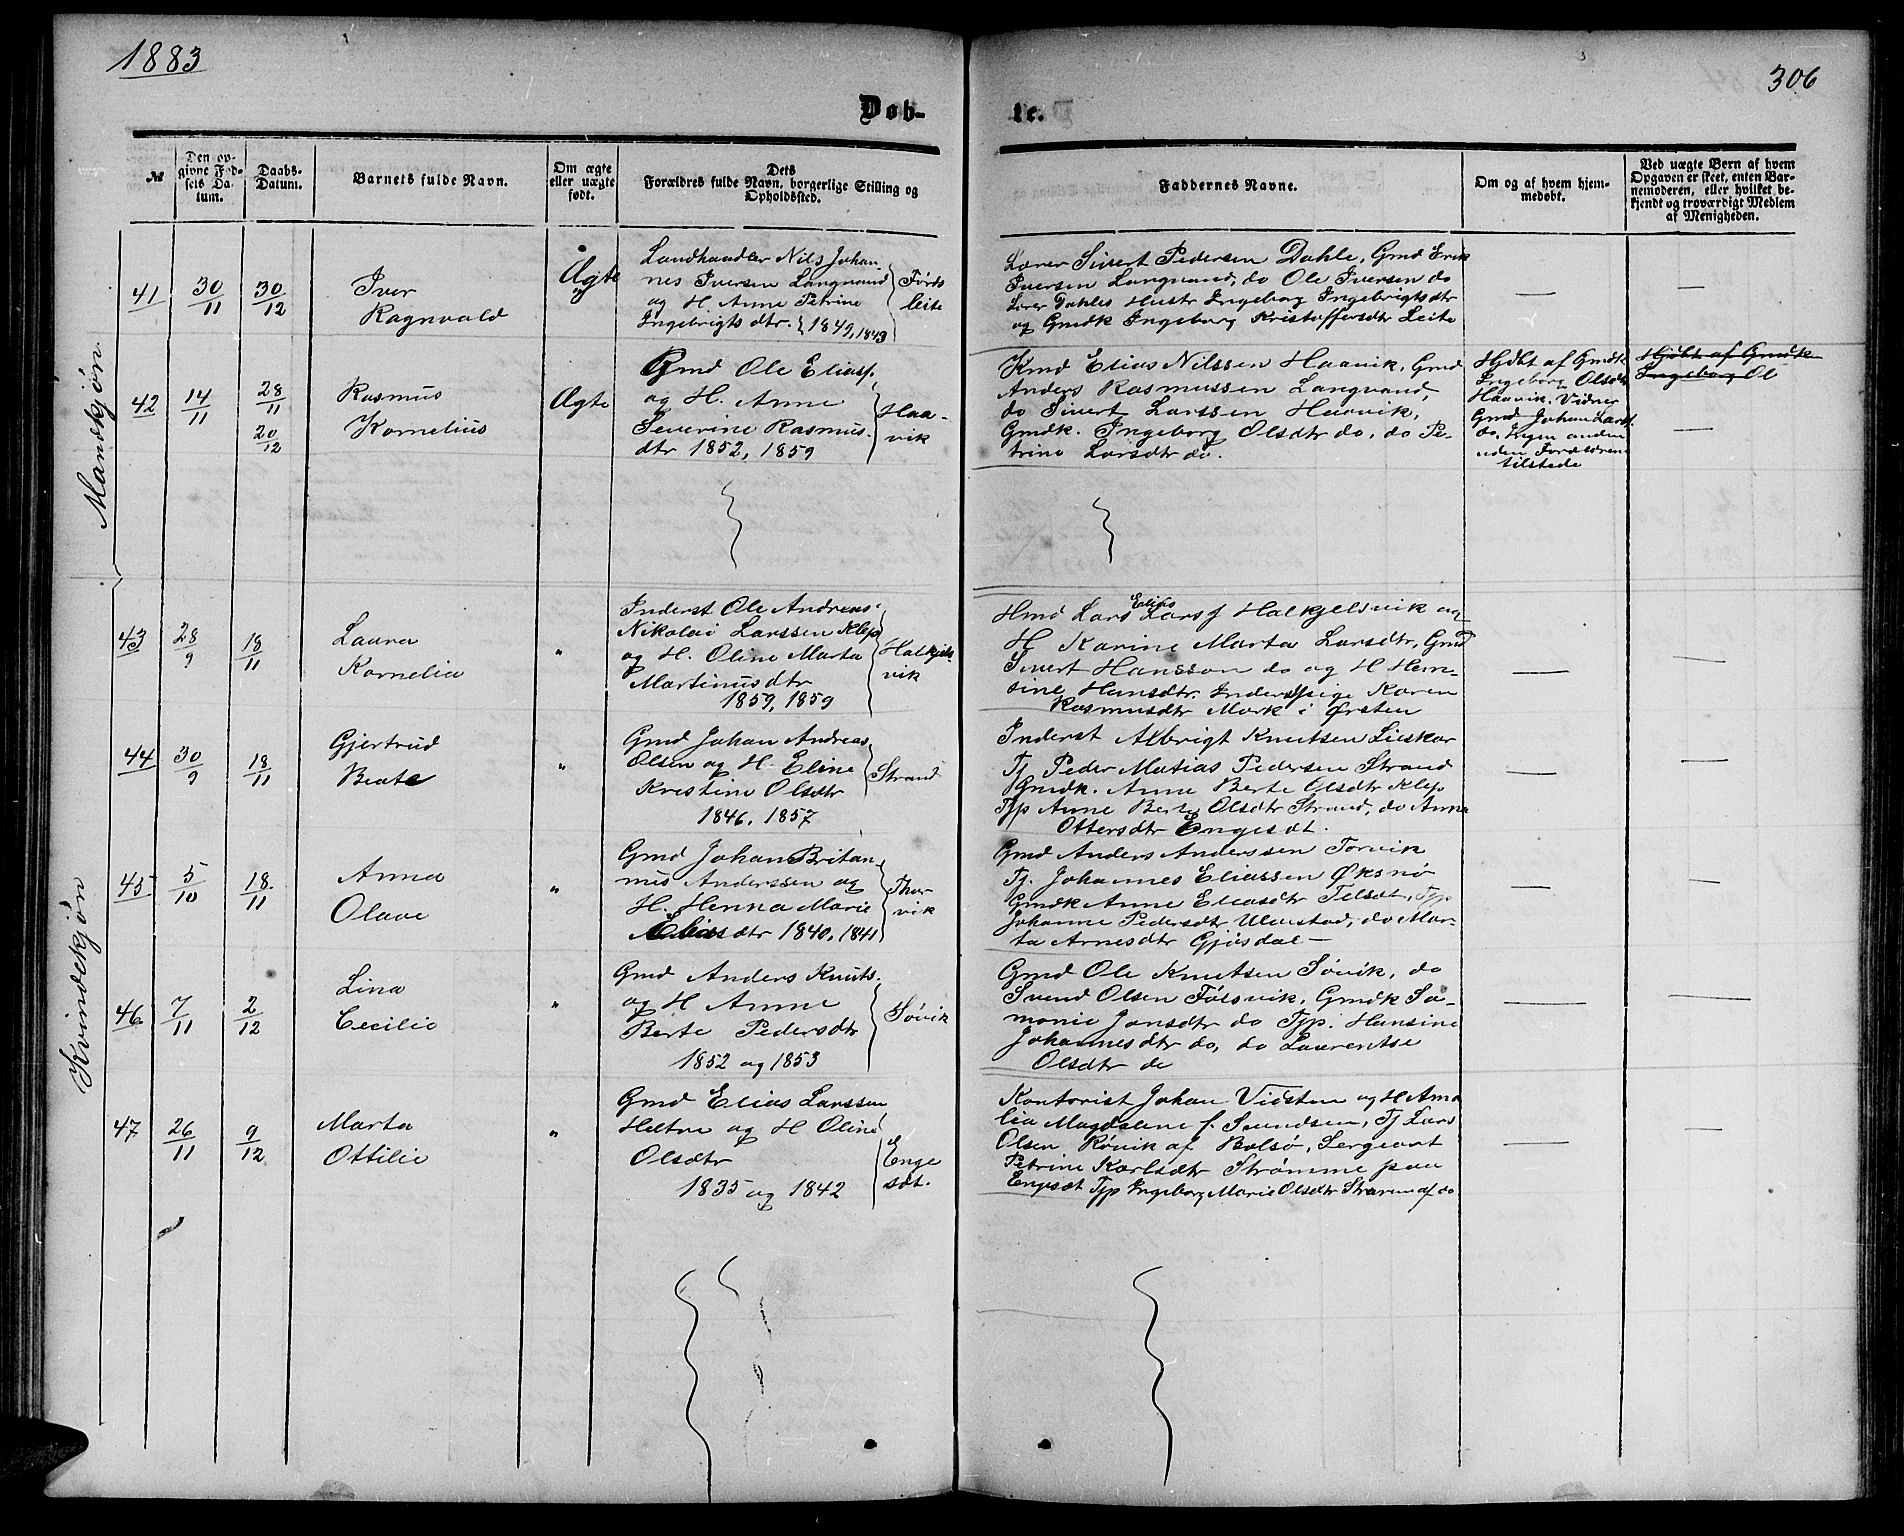 1883
306
Døb-
te.
№
Den op-
givne Fød-
sels Da-
tum.
Daabs-
Datum.
Barnets fulde Navn.
Om ægte
eller uægte
født.
Dets
Forældres fulde Navn, borgerlige Stilling og
Opholdssted.
Faddernes Navne.
Om og af hvem hjem-
medøbt.
Ved uægte Børn af hvem
Opgaven er skeet, enten Bar-
nemoderen, eller hvilket be-
kjendt og troværdigt Medlem
af Menigheden.
Mandkjøn
41
30/11
30/12
Iver
Ragnvald
Ægte
Landhandler Nils Johan-
nes Iversen Langvand
og H. Anne Petrine
Ingebrigtsdtr. 1849, 1849
Førds
leite
Lærer Sivert Pedersen Dahle, Gmd Erik
Iversen Langvand, do Ole Iversen do
Lærer Dahles Hustr Ingeborg Ingebrigtsdtr
og Gmdk Ingeborg Kristoffersdtr Leite
—
—
42
14/11
28/11
20/12
Rasmus
Kornelius
Ægte
Gmd Ole Eliass.
og H. Anne
Severine Rasmus-
dtr 1852, 1859
Haa-
vik
Kmd Elias Nilssen Haavik, Gmd
Anders Rasmussen Langvand,
do Sivert Larssen Haavik,
Gmdk. Ingeborg Olsdtr do, do Pe-
trine Larsdtr do.
Hjdbt af Gmdk
Ingeborg Olsdtr
Haavik. Vidner
Gmd Johan Larss.
do. Ingen anden
uden Forældrene
tilstede
Hjdbt af Gmdk
Ingeborg Ol
—
Kvindekjøn
43
28/9
18/11
Laura
Kornelia
"
Inderst Ole Andreas
Nikolai Larssen Klep
og H. Oline Marta
Martinusdtr
1859, 1859
Halkjels
vik
Elias
Gmd Lars Larss Halkjelsvik og
H Karine Marta Larsdtr, Gmd
Sivert Hanssen do og H Han-
sine Hansdtr. Inderstpige Karen
Rasmusdtr Mork i Ørsten
—
—
44
30/9
18/11
Gjertrud
Beate
"
Gmd Johan Andreas
Olsen og H. Eline
Kristine Olsdtr
1846, 1857
Strand
Inderst Albrigt Knutsen Lieskar
Tj Peder Matias Pedersen Strand
Gmdk. Anne Berte Olsdtr Klep
Tjp Anne Berte Olsdtr Strand, do Anna
Ottersdtr Engesdt.
—
—
45
5/10
18/11
Anna
Olave
"
Gmd Johan Britan-
nus Anderssen og
H. Henna Marie
Eliasdtr 1840, 1841
Thor
vik
Gmd Anders Anderssen Torvik
Tj. Johannes Eliassen Øksnø
Gmdk Anne Eliasdtr Telsdt, Tjp
Johanne Pedersdtr Ulvestad, do Mar-
ta Arnesdtr Gjøsdal —
—
—
46
7/11
2/12
Lina
Cecilie
"
Gmd Anders Knuts.
og H Anne
Berte Pedersdtr
1852 og 1853
Søvik
Gmd Ole Knutsen Søvik, do
Svend Olsen Følsvik, Gmdk Sa-
monie Jonsdtr do Tjp. Hansine
Johannesdtr do, do Laurentse
Olsdtr do
—
—
47
26/11
9/12
Marta
Ottilie
"
Gmd Elias Larssen
Haltne og H Oline
Olsdtr
1835 og 1842
Enge
sdt.
Kontorist Johan Vidsten og H Ama
lia Magdalene f. Svendsen, Tj Lars
Olsen Røvik af Bolsø, Sergeant
Petrine Karlsdtr Strømme paa
Engesdt Tjp Ingeborg Marie Olsdtr Strømme af do
—
—